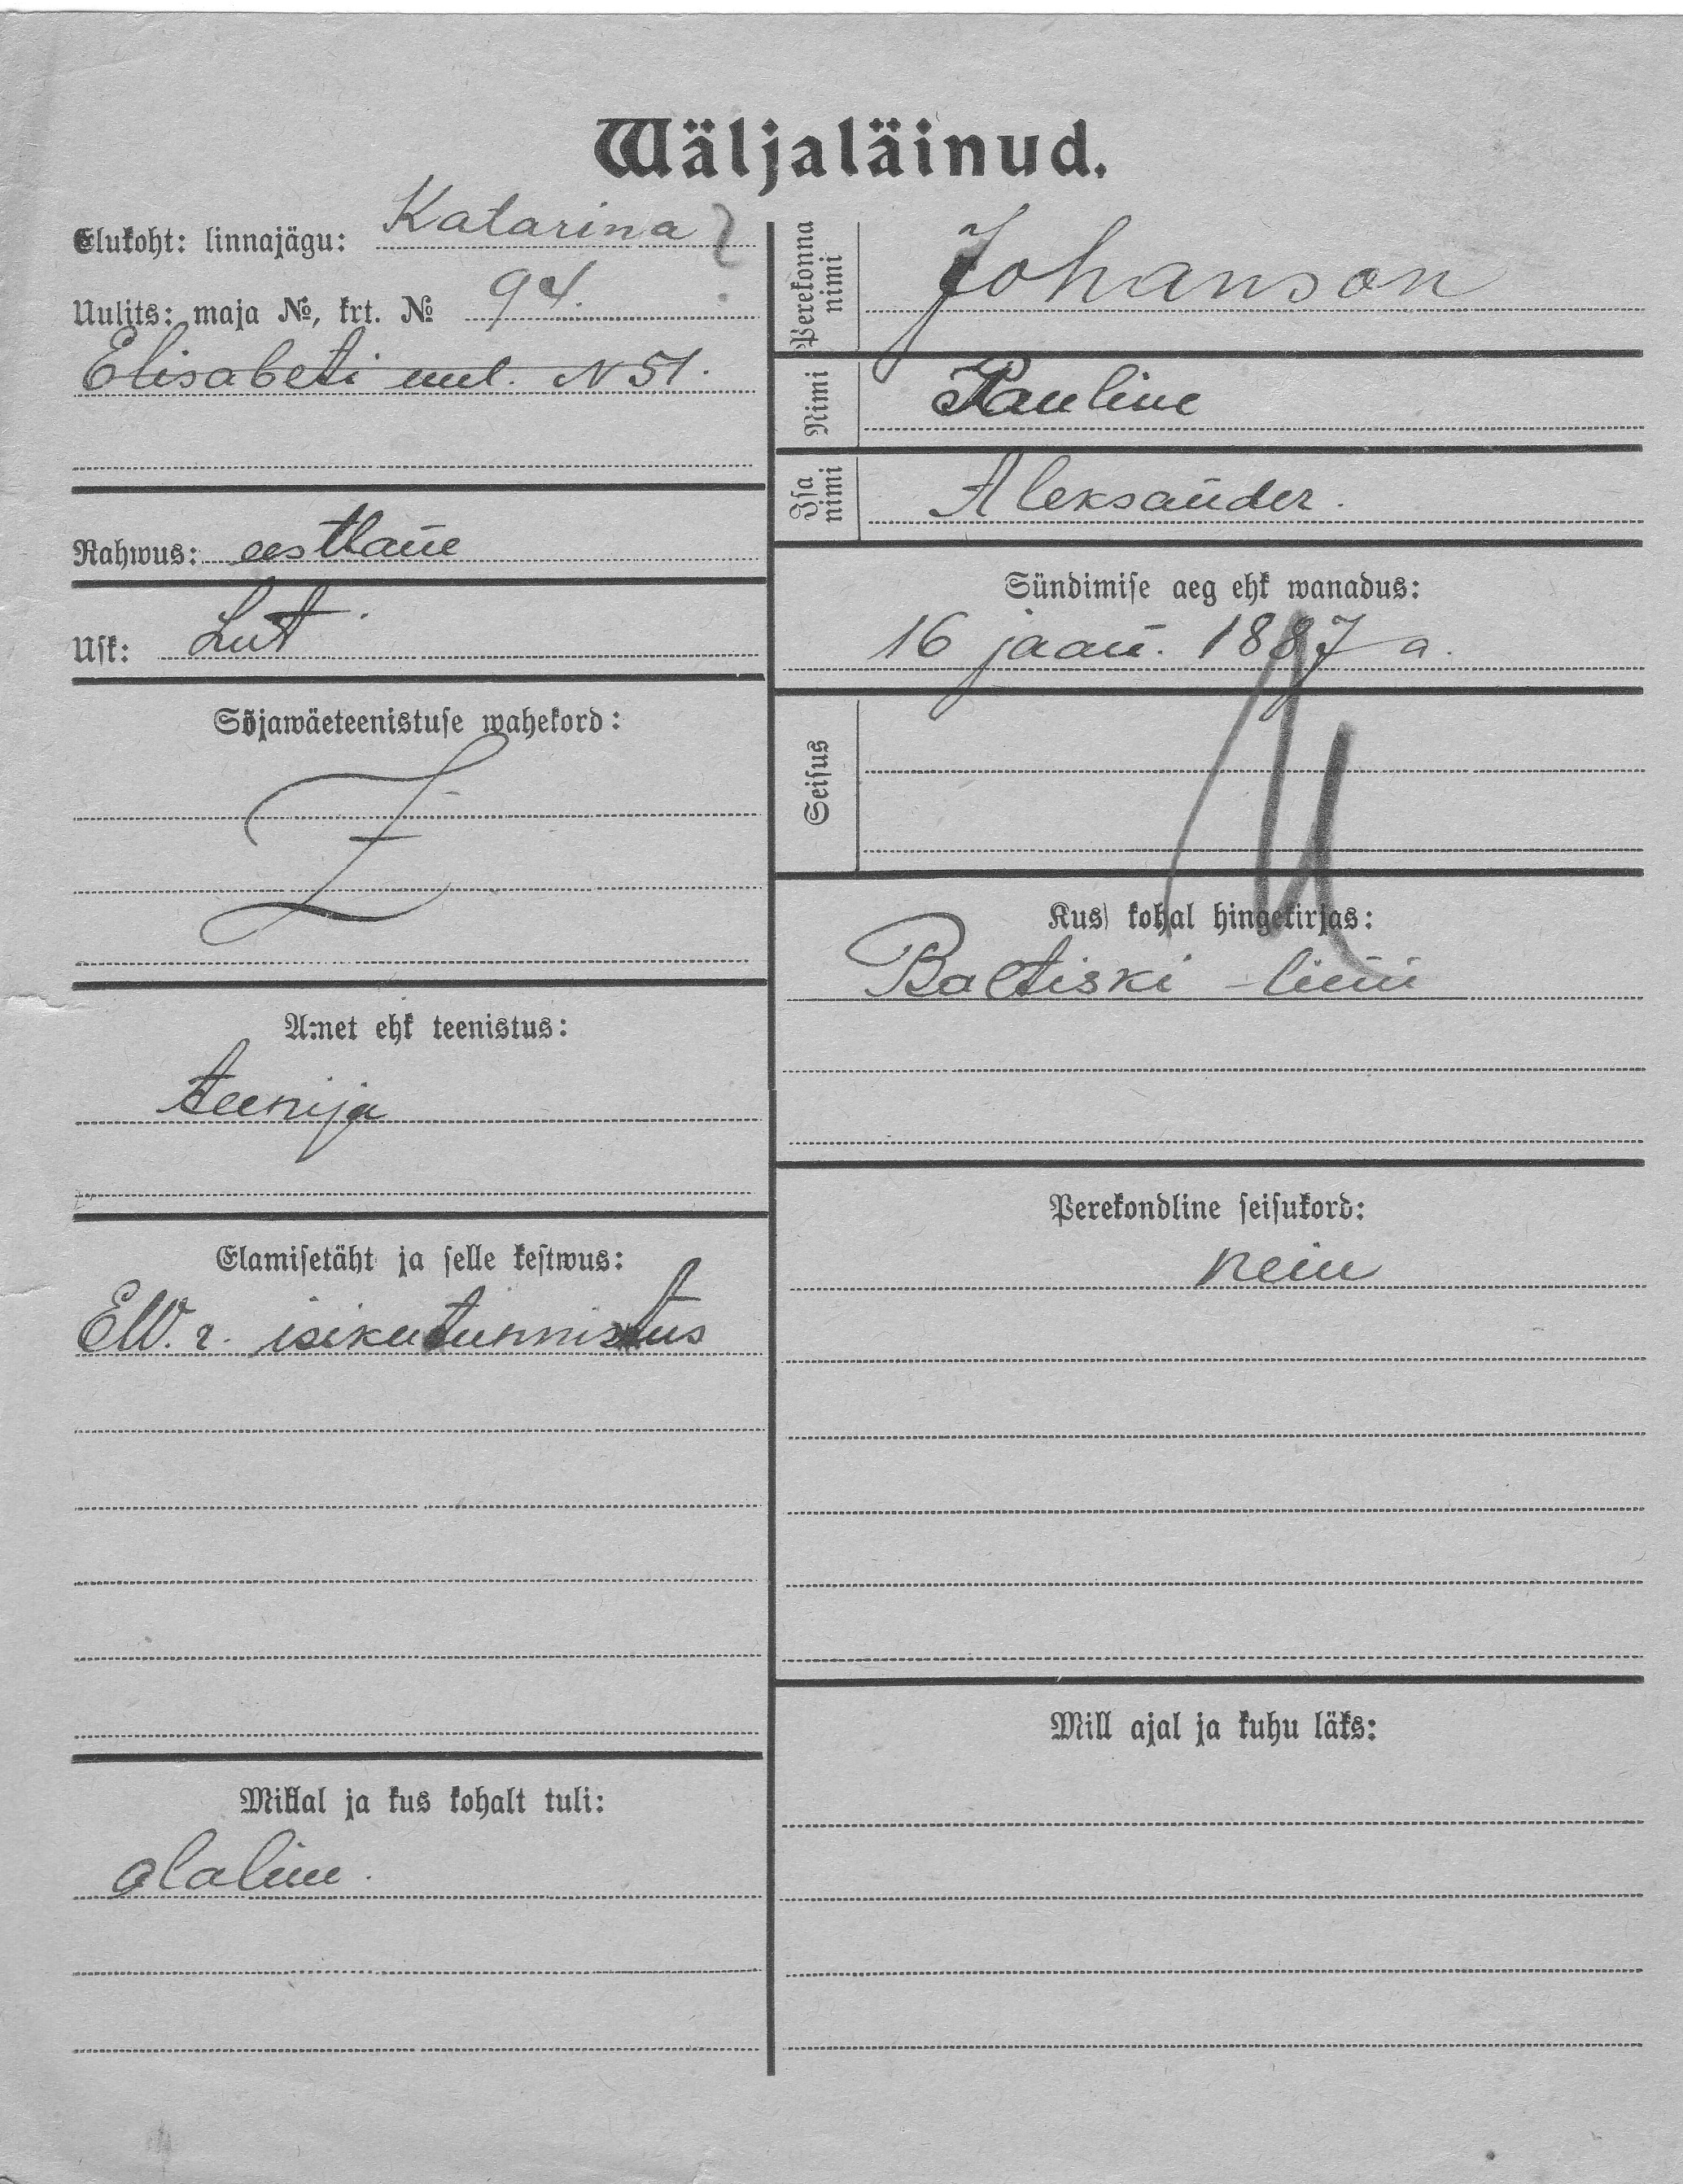 Wäljaläinud.
Elukoht: linnajägu: Katarina
Uulits: maja №, krt. № 94.
Elisabeti uul. N 51.
Rahwus: eestlane
Usk: Lut
Sõjawäeteenistuse wahekord:
Amet ehk teenistus:
teenija
Elamisetäht ja selle kestwus:
EW. r. isikutunnistus
Millal ja kus kohalt tuli:
alaline.
Perekonna nimi Johanson
Nimi Pauline
Isa nimi Aleksander.
Sündimise aeg ehk wanadus:
16 jaan. 1887 a.
Seisus
Kus kohal hingekirjas:
Baltiski - linn
Perekondline seisukord:
neiu
Mill ajal ja kuhu läks: